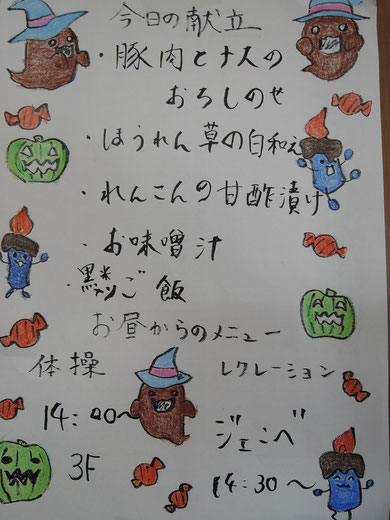 今日の献立
・豚肉とナスの
おろしのせ
・ほうれん草の白和え
・れんこんの甘酢漬け
・お味噌汁
・黒米入りご飯
お昼からのメニュー
体操
14:00〜
3F
レクレーション
ジェンベ
14:30〜